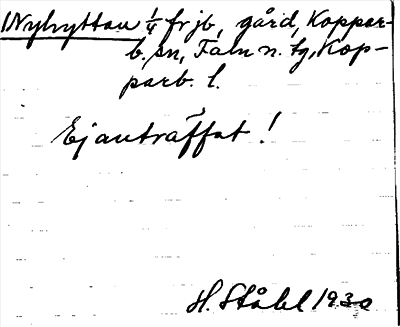 Nyhyttan 1/4 frjb, gård, Koppar-
b. sn, Falu n. tg, Kop-
parb. l.
Ej anträffat!
H. Ståhl 1930